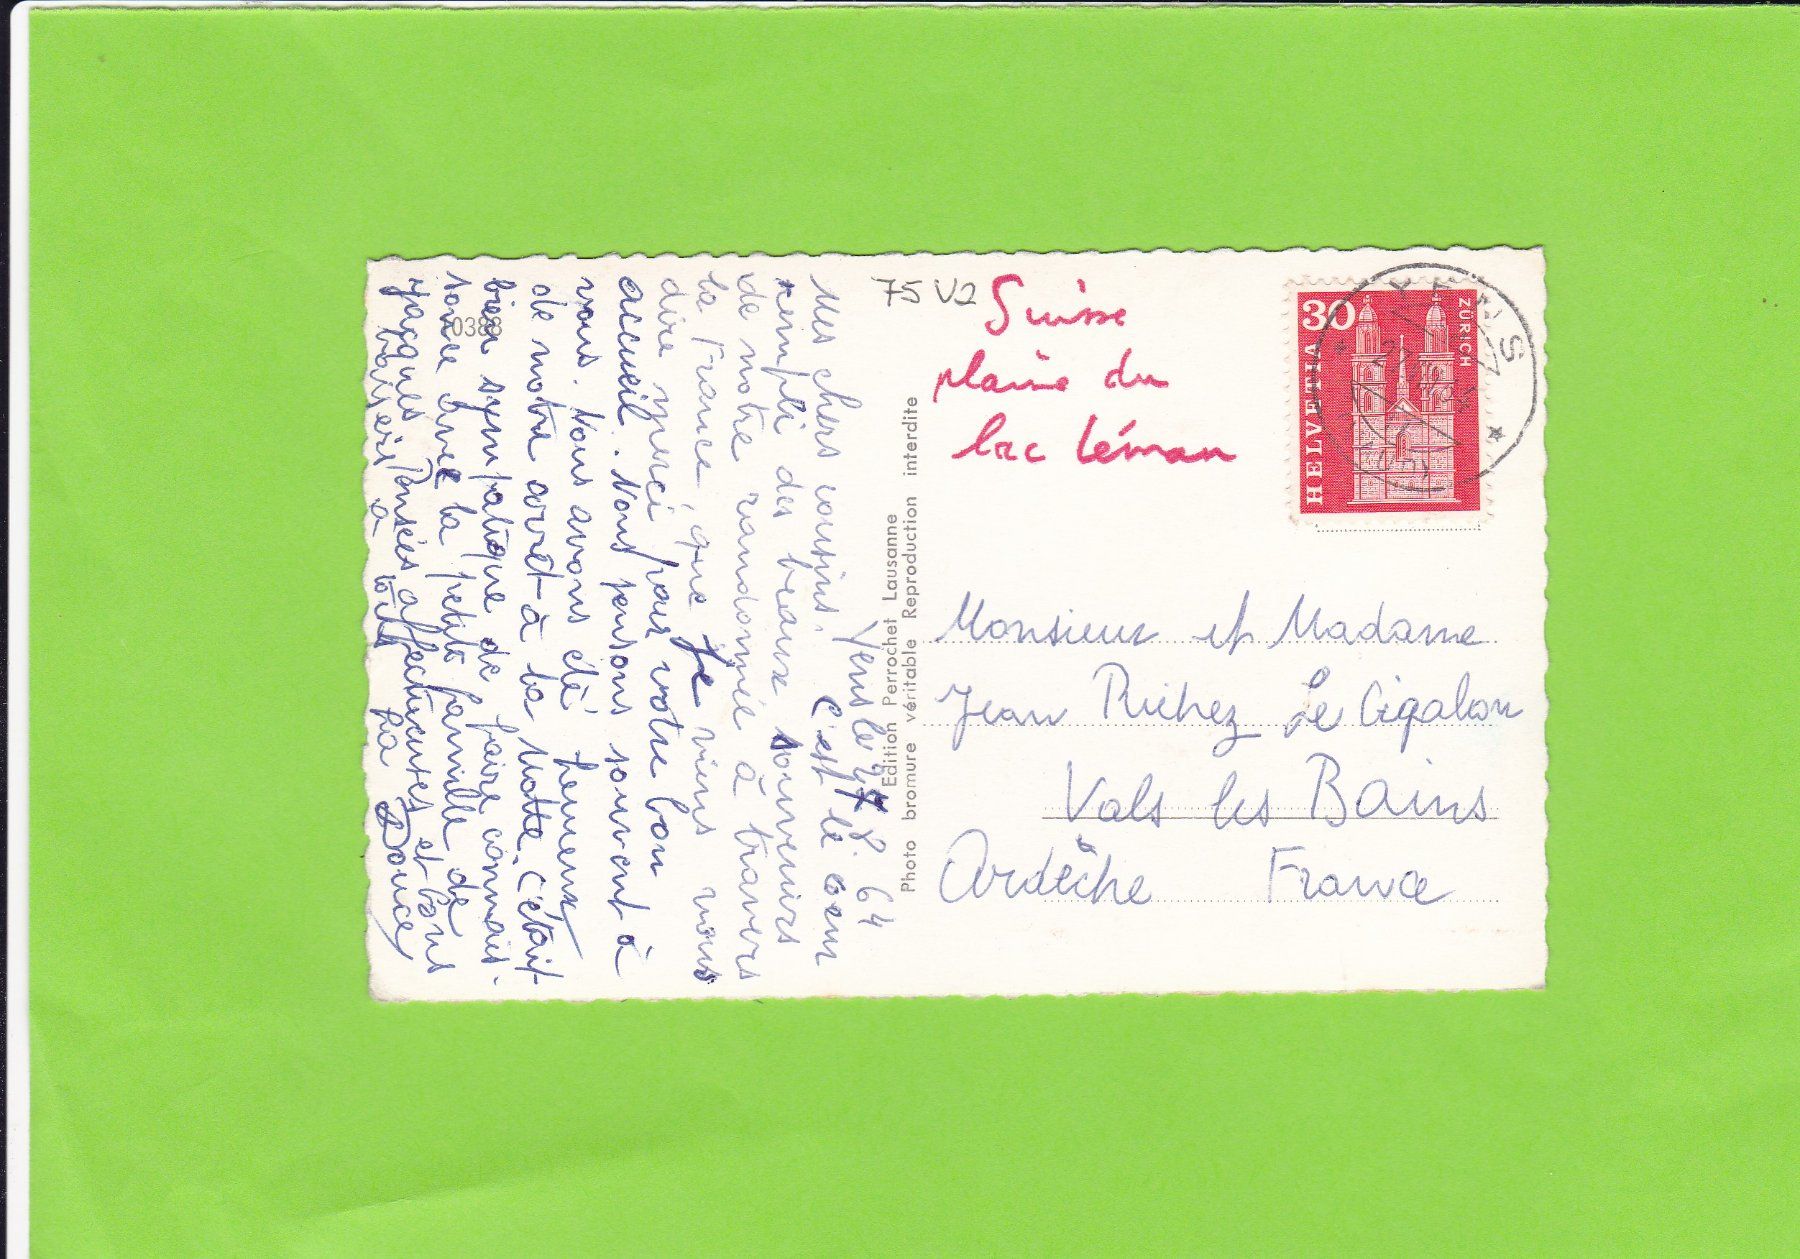 Yens le 27.8.64
Mes chers cousins. C'est le cœur
rempli des beaux souvenirs
de notre randonnée à travers
la France, que je viens vous
dire merci pour votre bon
accueil. Nous pensons souvent à
vous. Nous avons été heureux
de notre arrêt à la Motte, c'était
bien sympatique de faire connais-
sance avec la petite famille de
Jacques. Pensées affectueuses et bons
baisers à tous La Douce
0388
Edition Perrochet Lausanne
Photo bromure véritable Reproduction interdite
75 V2
Suisse
plaine du
lac Léman
30
HELVETIA
ZÜRICH
YENS
Monsieur et Madame
Jean Richez Le Cigalon
Vals les Bains
Ardèche France